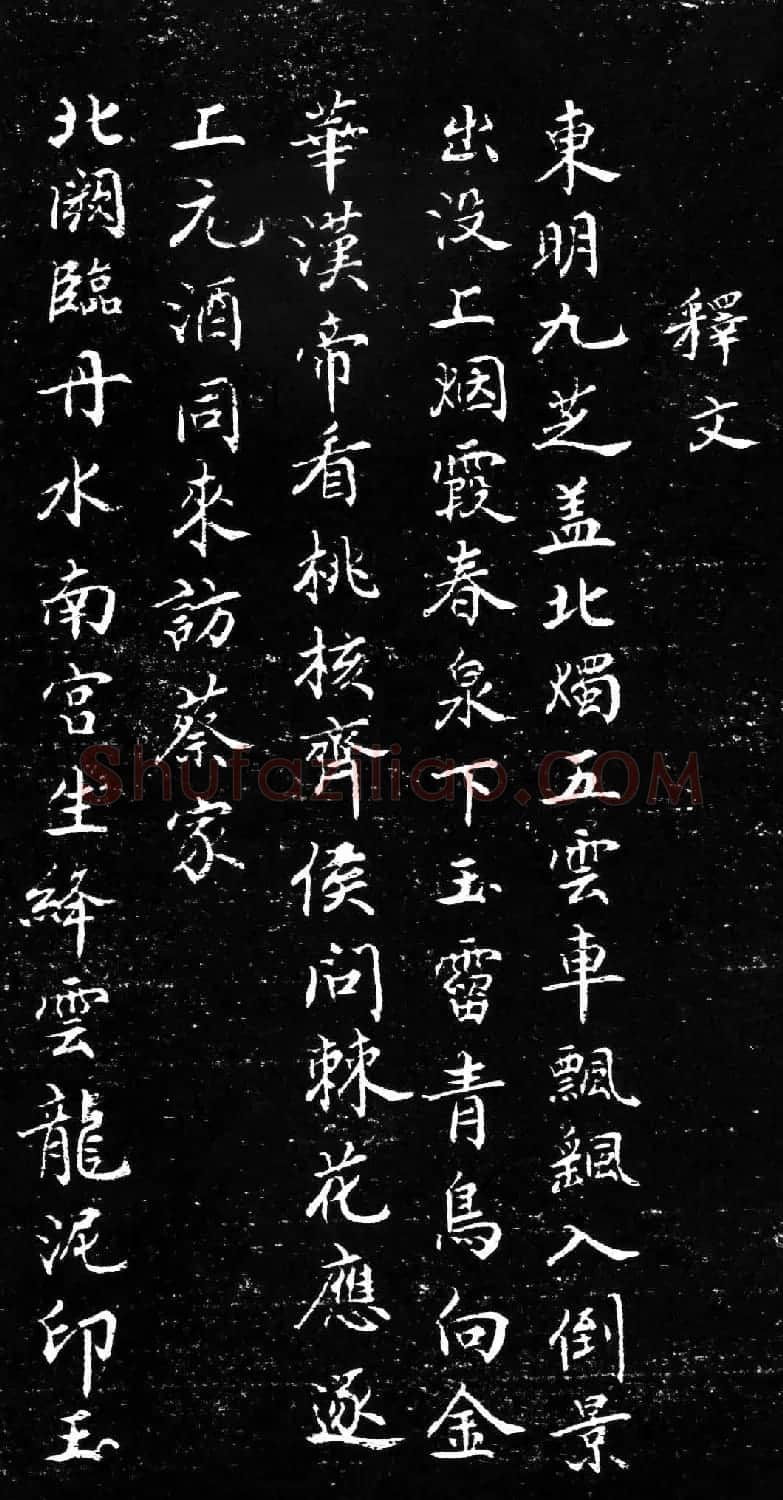 釋文
東明九芝盖北燭五雲車飄颻入倒景
出没上烟霞春泉下玉霤青鳥向金
華漢帝看桃核齊侯問棘花應逐
上元酒同來訪蔡家
北闕臨丹水南宫生絳雲龍泥印玉
Shufaziliao.COM